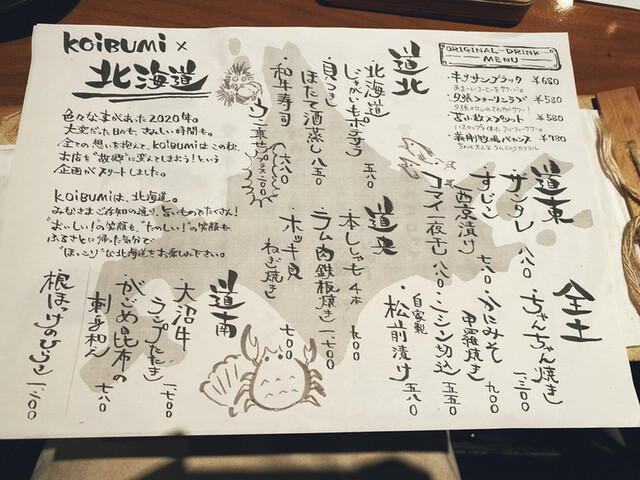 KOiBUMi ×
北海道
色々な事があった2020年。
大変だった日々も、さみしい時間も。
全ての想いを抱えて、KOiBUMiはこの秋、
お店を"故郷"に変えてしまおう！という
企画がスタートしました。
KOiBUMiは、北海道。
みなさまご存知の通り、旨いものでたくさん！
"おいしい！"の笑顔も、"たのしい！"の笑顔も
ふるさとに帰った気分で
"ほっこり"な北海道をお楽しみ下さい。
ORIGINAL DRINK
MENU
・キタサンブラック ¥680
¥580
¥580
¥780
道北
・北海道
じゃがいもポテサラ 五八〇
・貝つき
ほたて酒蒸し 八五〇
・和牛寿司 六八〇
道東
・サンタレ 八八〇
・すじこ
西京漬け 七八〇
・コマイ一夜干し 八八〇
道央
・本ししゃも 4本 九〇〇
・ラム肉鉄板焼き 一七〇〇
・ホッキ貝
ねぎ焼き 七〇〇
全土
・ちゃんちゃん焼き 一三〇〇
・かにみそ
甲羅焼き 九〇〇
・ニシン切込 五五〇
・自家製
松前漬け 五八〇
道南
・大沼牛
ランプたたき 一七〇〇
・がごめ昆布の
刺身和え 七八〇
・根ぼっけのひらき 一三〇〇